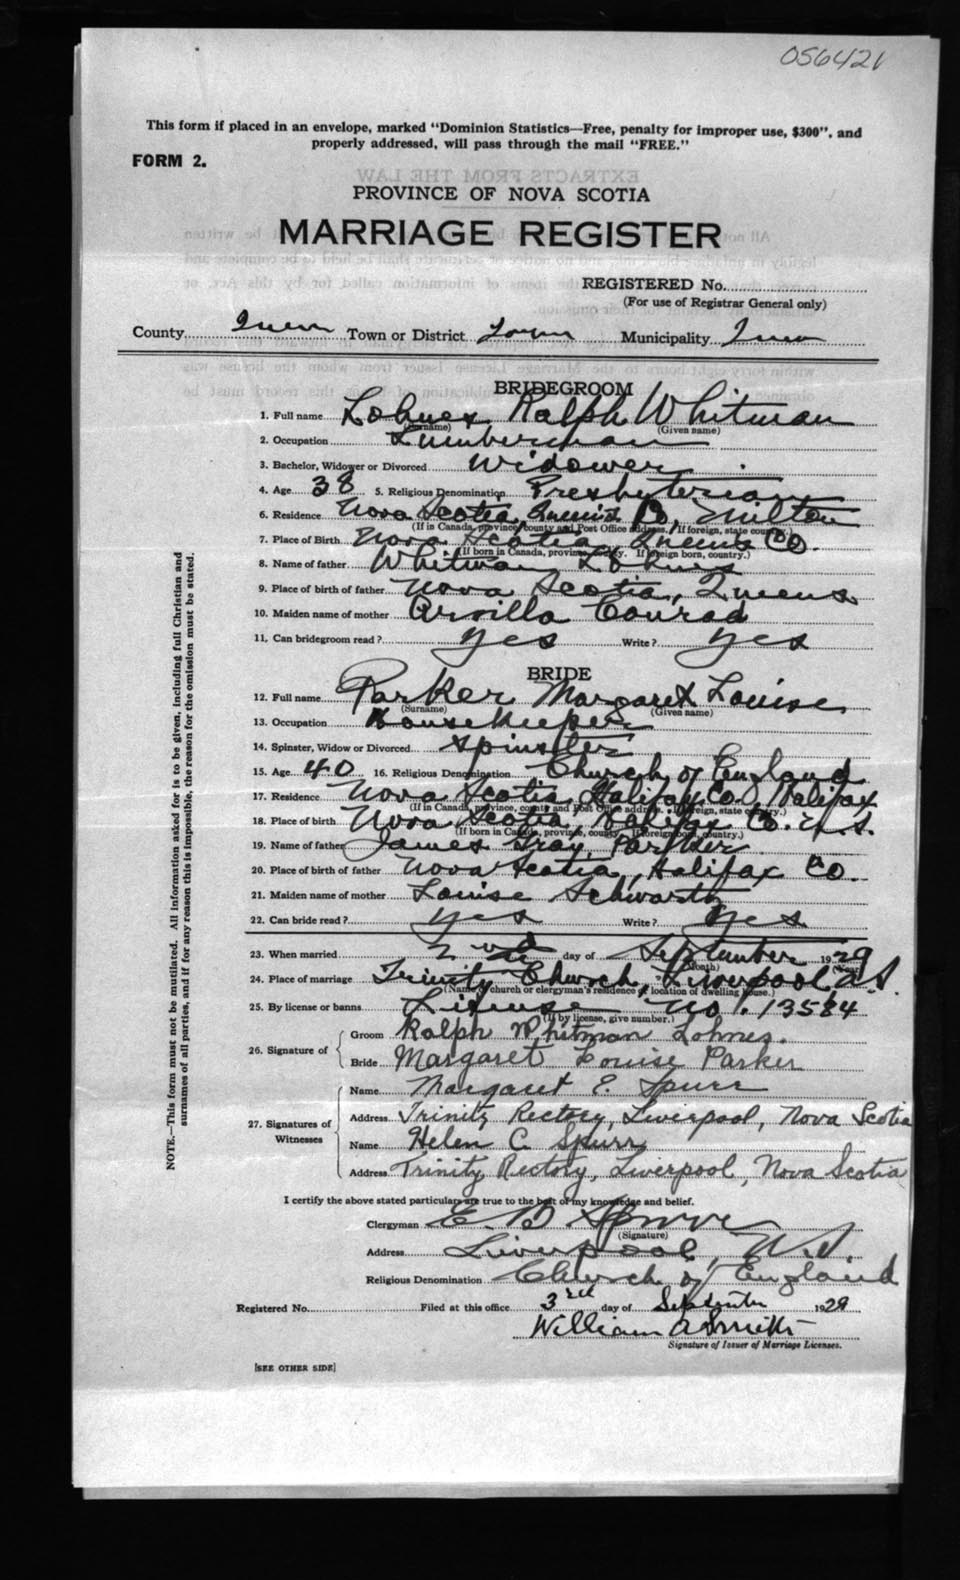 056421
This form if placed in an envelope, marked "Dominion Statistics—Free, penalty for improper use, $300", and
properly addressed, will pass through the mail "FREE."
FORM 2.
PROVINCE OF NOVA SCOTIA
MARRIAGE REGISTER
REGISTERED No.
(For use of Registrar General only)
County Queens Town or District Town Municipality Queens
BRIDEGROOM
1. Full name Lohnes Ralph Whitman
(Surname) (Given name)
2. Occupation Lumberman
3. Bachelor, Widower or Divorced Widower
4. Age 38 5. Religious Denomination Presbyterian
6. Residence Nova Scotia, Queens Co, Milton
(If in Canada, province, county and Post Office address. If foreign, state country.)
7. Place of Birth Nova Scotia, Queens Co.
(If born in Canada, province, county. If foreign born, country.)
8. Name of father Whitman Lohnes
9. Place of birth of father Nova Scotia, Queens
10. Maiden name of mother Arvilla Conrad
11. Can bridegroom read? Yes Write? Yes
BRIDE
12. Full name Parker Margaret Louise
(Surname) (Given name)
13. Occupation Housekeeper
14. Spinster, Widow or Divorced Spinster
15. Age 40 16. Religious Denomination Church of England
17. Residence Nova Scotia, Halifax Co., Halifax
(If in Canada, province, county and Post Office address. If foreign, state country.)
18. Place of birth Nova Scotia, Halifax Co. N.S.
(If born in Canada, province, county. If foreign born, country.)
19. Name of father James Gray Parker
20. Place of birth of father Nova Scotia, Halifax Co.
21. Maiden name of mother Louise Schwartz
22. Can bride read? Yes Write? Yes
23. When married 2nd day of September 1929
(Month) (Year)
24. Place of marriage Trinity Church, Liverpool, N.S.
(Name of church or clergyman's residence or location of dwelling house.)
25. By license or banns License No. 13584
(If by license, give number.)
26. Signature of
Groom Ralph Whitman Lohnes.
Bride Margaret Louise Parker
27. Signatures of Witnesses
Name Margaret E. Spurr
Address Trinity Rectory, Liverpool, Nova Scotia
Name Helen C. Spurr
Address Trinity Rectory, Liverpool, Nova Scotia
I certify the above stated particulars are true to the best of my knowledge and belief.
Clergyman E. B. Spurr
(Signature)
Address Liverpool, N.S.
Religious Denomination Church of England
Registered No. Filed at this office 3rd day of September 1929
William A Smith
Signature of Issuer of Marriage Licenses.
[SEE OTHER SIDE]
NOTE.—This form must not be mutilated. All information asked for is to be given, including full Christian and
surnames of all parties, and if for any reason this is impossible, the reason for the omission must be stated.